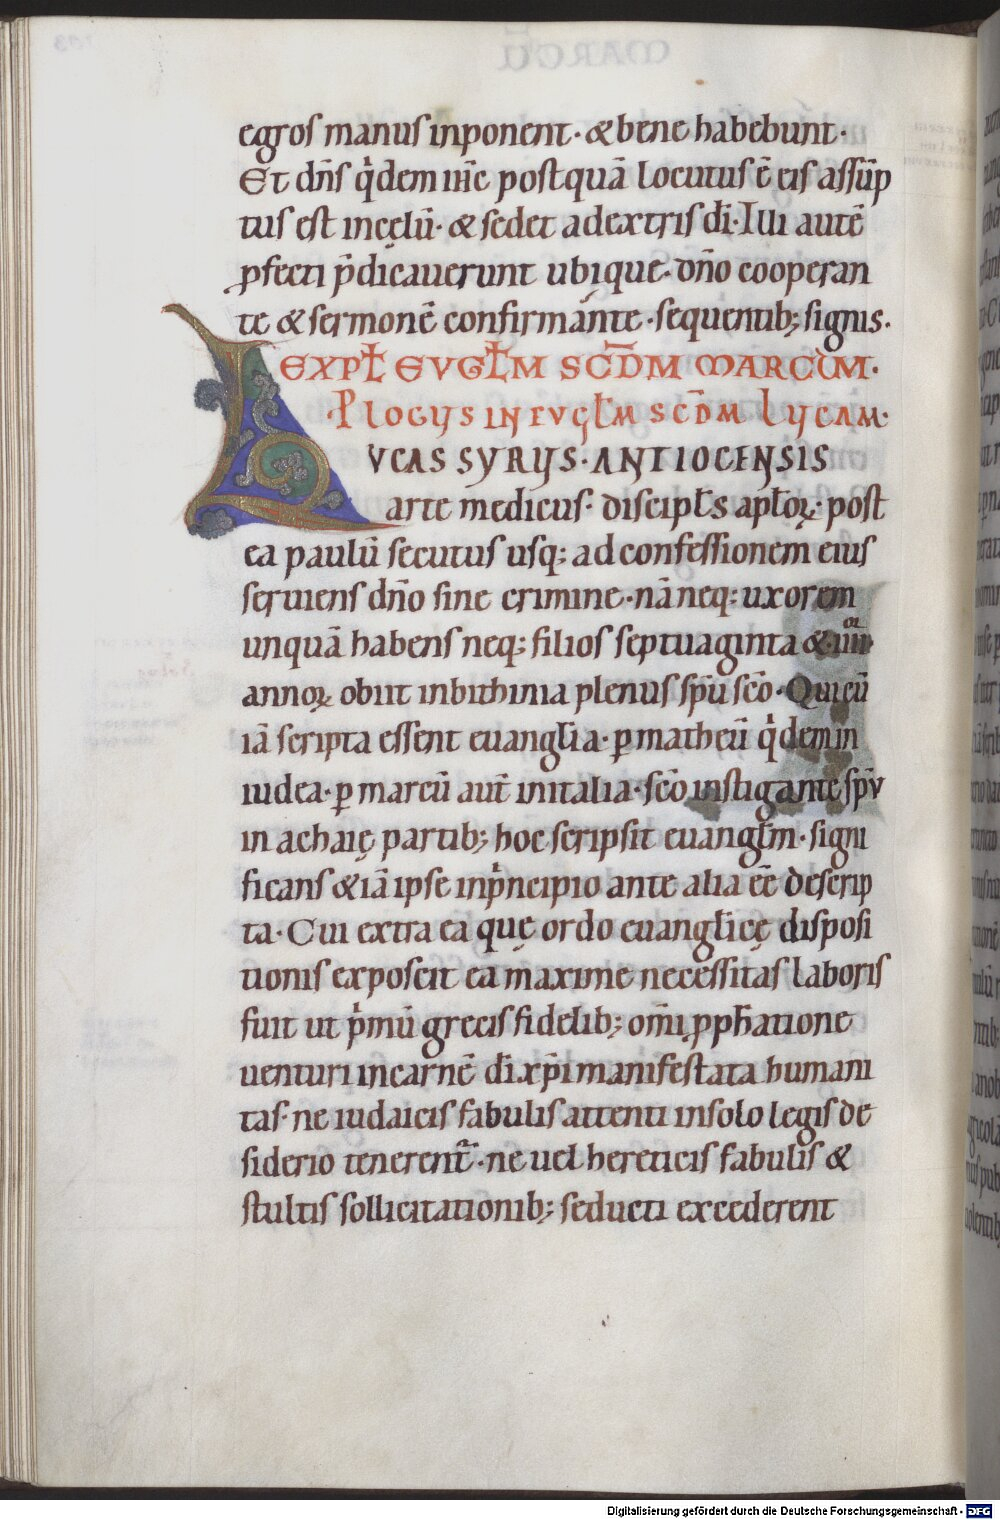 egros manus inponent · & bene habebunt ·
Et dñs q̇dem ih̅c postquā locutus ē eis assūp
tus est incęlū · & sedet adextris dī · Illi autē
ꝓfecti p̄dicauerunt ubique · dño cooperan
te & sermonē confirmante · sequentib; signis ·
EXPƚ EVGƚM SCD̅M MARCUM ·
Plogus in evgƚm scd̅m lucam ·
LVCAS SYRUS · ANTIOCENSIS
arte medicus · discipƚs apƚoꝝ · post
ea paulū secutus usq; ad confessionem eius
seruiens dño sine crimine · nā neq; uxorem
unquā habens neq; filios septuaginta & ·iiii·or
annoꝝ obiit inbithinia plenus sp̄u sc̄o · Qui cū
iā scripta essent euangƚia · ꝑ matheū q̇dem in
iudea · ꝑ marcū aut̄ initalia · sc̄o instigante sp̄u
in achaię partib; hoc scripsit euangƚm · signi
ficans & iā ipse inp̍ncipio ante alia ēē descrip
ta · Cui extra ea quę ordo euangƚicę disposi
tionis exposcit ea maxime necessitas laboris
fuit ut p̍mū grecis fidelib; om̄i ꝓph̄atione
uenturi incarnē dī xp̄i manifestata humani
tas · ne iudaicis fabulis attenti insolo legis de
siderio tenerent᷑ · ne uel hereticis fabulis &
stultis sollicitationib; seducti excederent
Digitalisierung gefördert durch die Deutsche Forschungsgemeinschaft - DFG